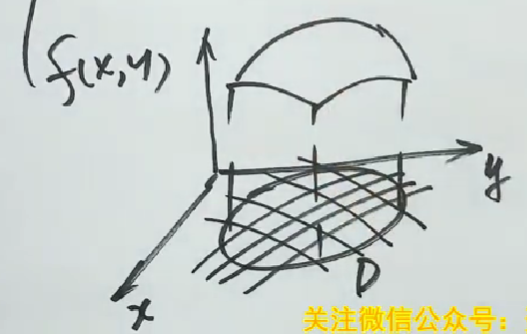 f(x,y)
y
D
x
关注微信公众号：